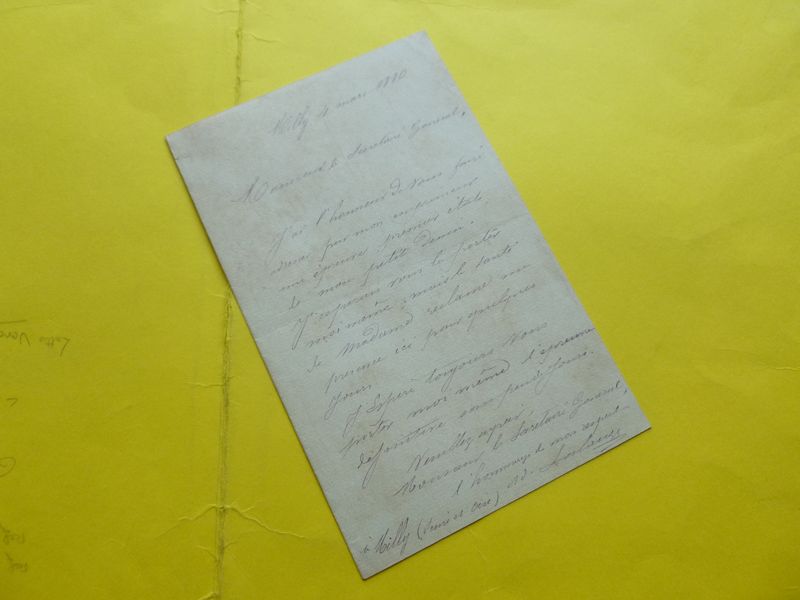 Milly 4 mars 1890
Monsieur le Secretaire General,
J'ai l'honneur de vous faire
adresser par mon
une épreuve premier état
de mon petit dessin.
J'esperais vous la porter
moi même; mais la santé
de Madame reclame ma
presence ici pour quelques
jours.
J'espère toujours vous
porter moi même l'épreuve
définitive sous peu de jours.
Veuillez agréer,
Monsieur le Secretaire General
l'hommage de mon respect.
à Milly (Seine et Oise) Ad.
Lettre